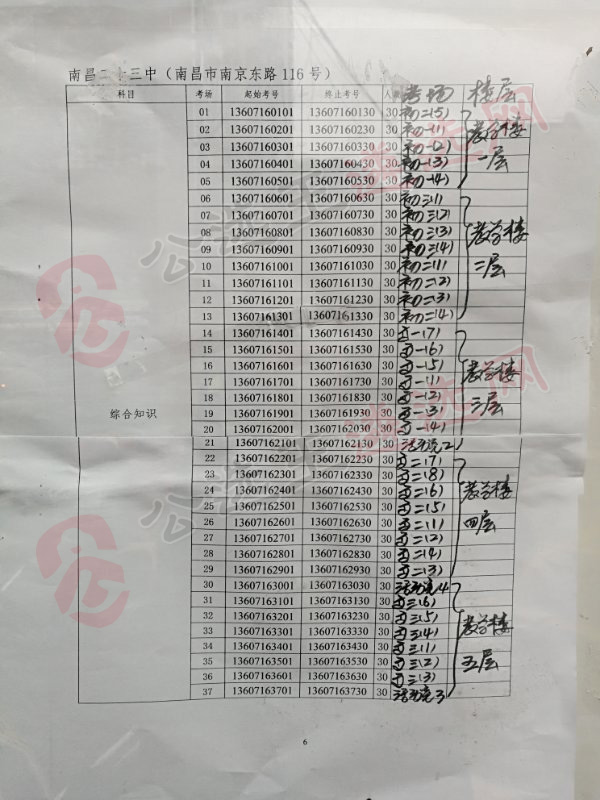 南昌二十三中（南昌市南京东路 116 号）
科目 考场 起始考号 终止考号 人数 考场 楼层
01 13607160101 13607160130 30 初二(5)
02 13607160201 13607160230 30 初一(1) 教学楼
03 13607160301 13607160330 30 初一(2)
04 13607160401 13607160430 30 初一(3) 一层
05 13607160501 13607160530 30 初一(4)
06 13607160601 13607160630 30 初三(1)
07 13607160701 13607160730 30 初三(2)
08 13607160801 13607160830 30 初三(3) 教学楼
09 13607160901 13607160930 30 初三(4)
10 13607161001 13607161030 30 初二(1) 二层
11 13607161101 13607161130 30 初二(2)
12 13607161201 13607161230 30 初二(3)
13 13607161301 13607161330 30 初二(4)
14 13607161401 13607161430 30 高一(7)
15 13607161501 13607161530 30 高一(6)
16 13607161601 13607161630 30 高一(5) 教学楼
17 13607161701 13607161730 30 高一(1)
18 13607161801 13607161830 30 高一(2) 三层
综合知识 19 13607161901 13607161930 30 高一(3)
20 13607162001 13607162030 30 高一(4)
21 13607162101 13607162130 30 活动室2
22 13607162201 13607162230 30 高二(7)
23 13607162301 13607162330 30 高二(8)
24 13607162401 13607162430 30 高二(6) 教学楼
25 13607162501 13607162530 30 高二(5)
26 13607162601 13607162630 30 高二(1) 四层
27 13607162701 13607162730 30 高二(2)
28 13607162801 13607162830 30 高二(4)
29 13607162901 13607162930 30 高二(3)
30 13607163001 13607163030 30 活动室4
31 13607163101 13607163130 30 高三(6)
32 13607163201 13607163230 30 高三(5) 教学楼
33 13607163301 13607163330 30 高三(4)
34 13607163401 13607163430 30 高三(1)
35 13607163501 13607163530 30 高三(2) 五层
36 13607163601 13607163630 30 高三(3)
37 13607163701 13607163730 30 活动室3
6